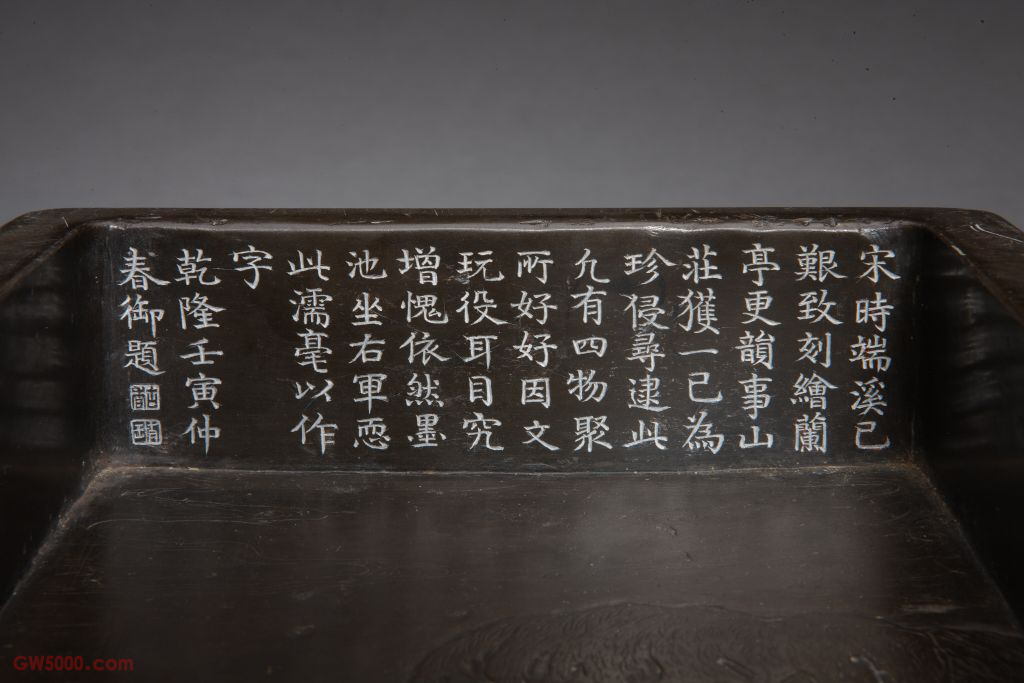 宋時端溪已
艱致刻繪蘭
亭更韻事山
莊獲一已為
珍侵尋逮此
九有四物聚
所好好因文
玩役耳目究
增愧依然墨
池坐右軍恧
此濡毫以作
字
乾隆壬寅仲
春御題
GW5000.com